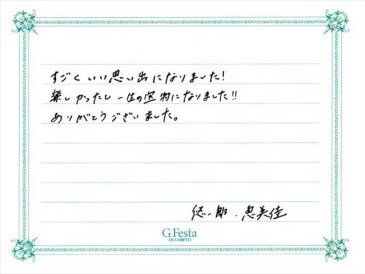 すごくいい思い出になりました!
楽しかったし一生の宝物になりました!!
ありがとうございました。
悠一朗・恵美佳
G.Festa
DIAMOND